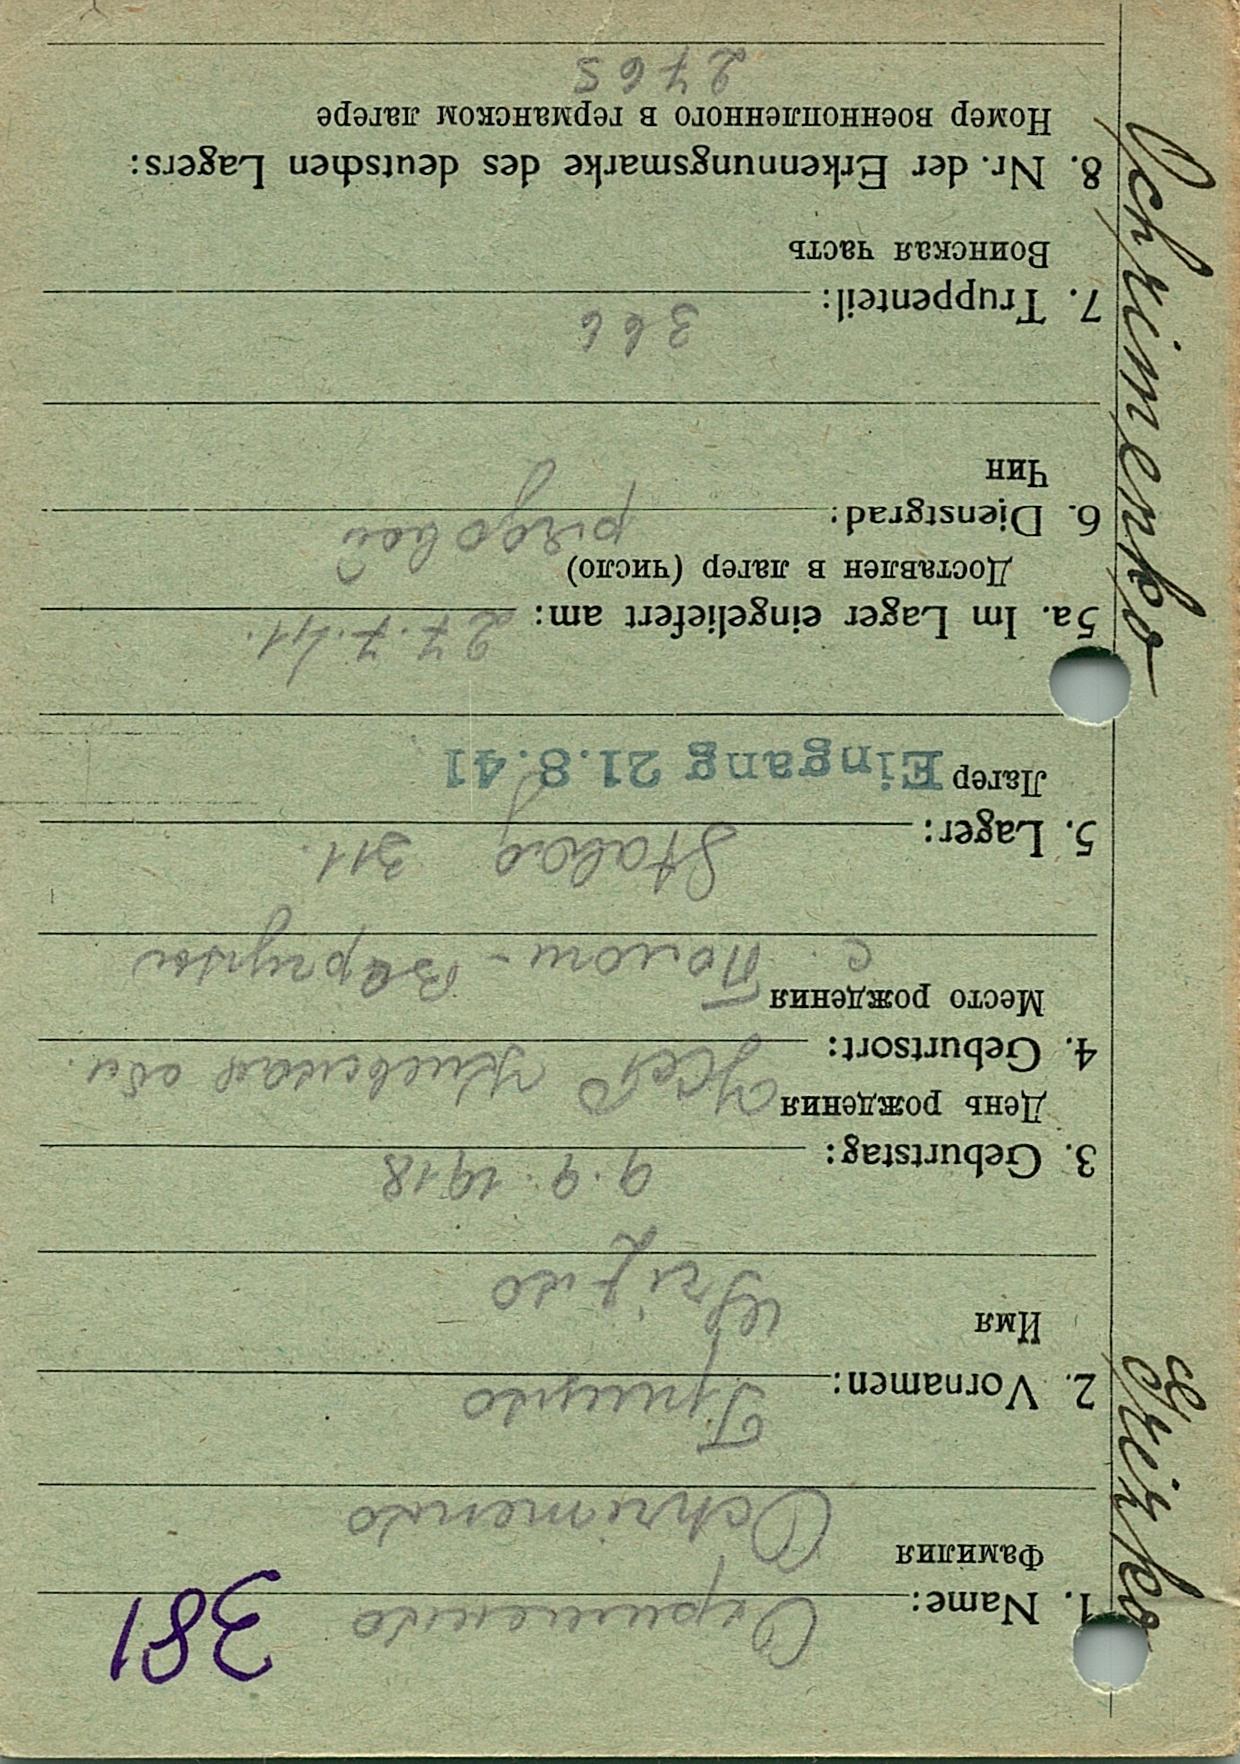 381
1. Name: Охрименко
Фамилия
Ochrimenko
2. Vornamen: Грицко
Имя
Grizko
3. Geburtstag: 9.9.1918
День рождения
УССР Киевская обл.
4. Geburtsort:
Место рождения
с.
5. Lager: Stalag 311.
Лагер Eingang 21.8.41
5a. Im Lager eingeliefert am: 27.7.41.
Доставлен в лагер (число)
6. Dienstgrad: рядовой
Чин
7. Truppenteil: 366
Воинская часть
8. Nr. der Erkennungsmarke des deutschen Lagers:
Номер военнопленного в германском лагере
2765
Ochrimenko Grizko